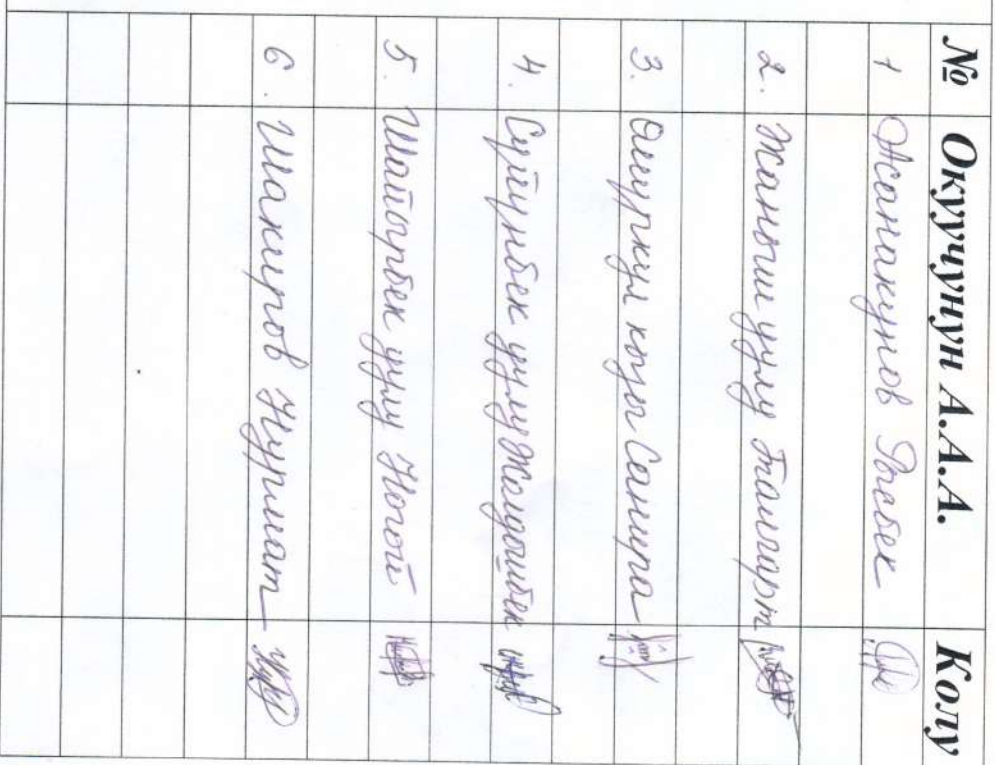 № Окуучунун А.А.А. Колу
1 Жанакунов Рысбек
2. Жаныш уулу Талгарт
3. Өмүркул кызы Санира
4. Суйунбек уулу Жолдошбек
5. Шайырбек уулу Ногой
6. Шакиров Нурмат